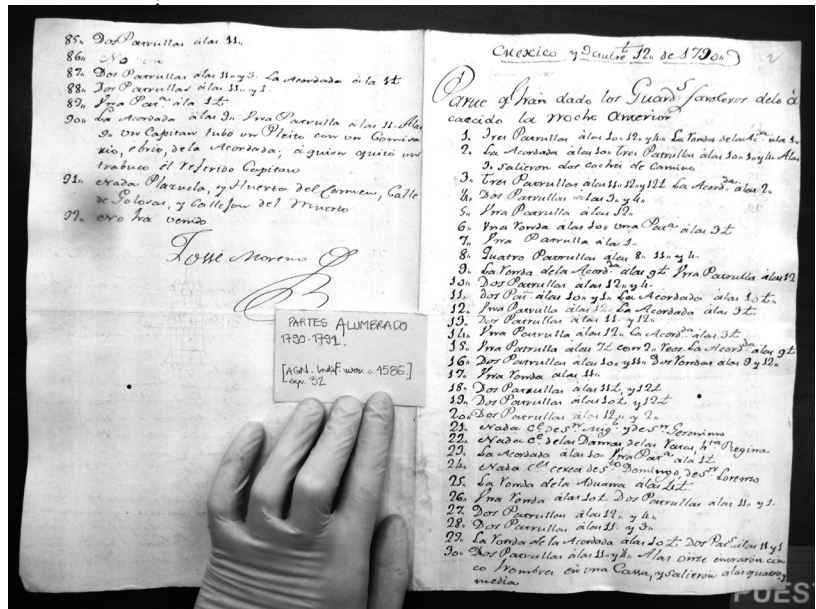 85,, Dos Patrullas álas 11,,
86,,
87,, Dos Patrullas alas 11,, y 3. La Acordada ála 1t
88,, Dos Patrullas álas 11,, y 1.
89,, Vna Pat.ª ála 1t
90,, La Acordada álas 9,, Vna Patrulla álas 11,, Alas
9,, un Capitan tubo un Pleito con un Comisa
rio, ebrio, de la Acordada; á quien quitó un
trabuco el referido Capitan
91,, Nada Plazuela, y Huerta del Carmen, Calle
de Poloras, y Callejon del Muerto
92,, No ha venido
Josse Moreno
PARTES ALUMBRADO
1790-1791.
[AGN. Indif. Nov. c. 4586.]
exp. 32
Mexico y Octubre 12,, de 1790,,
2
Parte q.e hán dado los Guard.s faroleros delo á
caecido la noche anterior
1,, Tres Patrullas álas 10,, 12,, y 4,, La Ronda de la
2,, La Acordada álas 10,, Tres Patrullas álas 10,, 1,, y 4,, Alas
3,, salieron dos coches de Camino
3,, Tres Patrullas álas 11,, 12,, y 12t La Acord.da álas 2,,
4,, Dos Patrullas alas 3,, y 4,,
5,, Vna Patrulla álas 12,,
6,, Vna Ronda álas 10,, vna Pat.ª álas 3t
7,, Vna Patrulla ála 1.
8,, Quatro Patrullas álas 8,, 11,, y 4.
9,, La Ronda de la Acord.da álas 9t Vna Patrulla álas 12
10,, Dos Patrullas álas 12,, y 4.
11,, dos Pat.s álas 10,, y 1,, La Acordada álas 10t,,
12,, Vna Patrulla álas 12,, La Acordada álas 3t
13,, Dos Patrullas álas 11,, y 12,,
14,, Vna Patrulla álas 12,, La Acord.da álas 3t
15,, Vna Patrulla álas 7t con 2,, La Acord.da álas 9t
16,, Dos Patrullas álas 10,, y 11,, Dos Rondas álas 9 y 12,,
17,, Vna Ronda álas 11,,
18,, Dos Patrullas álas 11t, y 12t
19,, Dos Patrullas álas 10t y 12t
20,, Dos Patrullas álas 12,, y 2,,
21,, Nada C.e de S.n y de S.n Geronimo
22,, Nada C.e de las Damas, de las Ratas, Regina
23,, La Acordada álas 10,, Vna Pat.ª ála 1t
24,, Nada C.es cerca de S.to Domingo, de S.n Lorenzo
25,, La Ronda de la Aduana álas
26,, Vna Ronda álas 10t Dos Patrullas álas 11,, y 1.
27,, Dos Patrullas álas 12,, y 4,,
28,, Dos Patrullas álas 11,, y 3,,
29,, La Ronda de la Acordada álas 10t Dos Pat.s álas 11 y 1
30,, Dos Patrullas álas 11,, y 4,, Alas once entraron cin
co hombres en vna Cassa, y salieron álas quatro y
media
PUEST